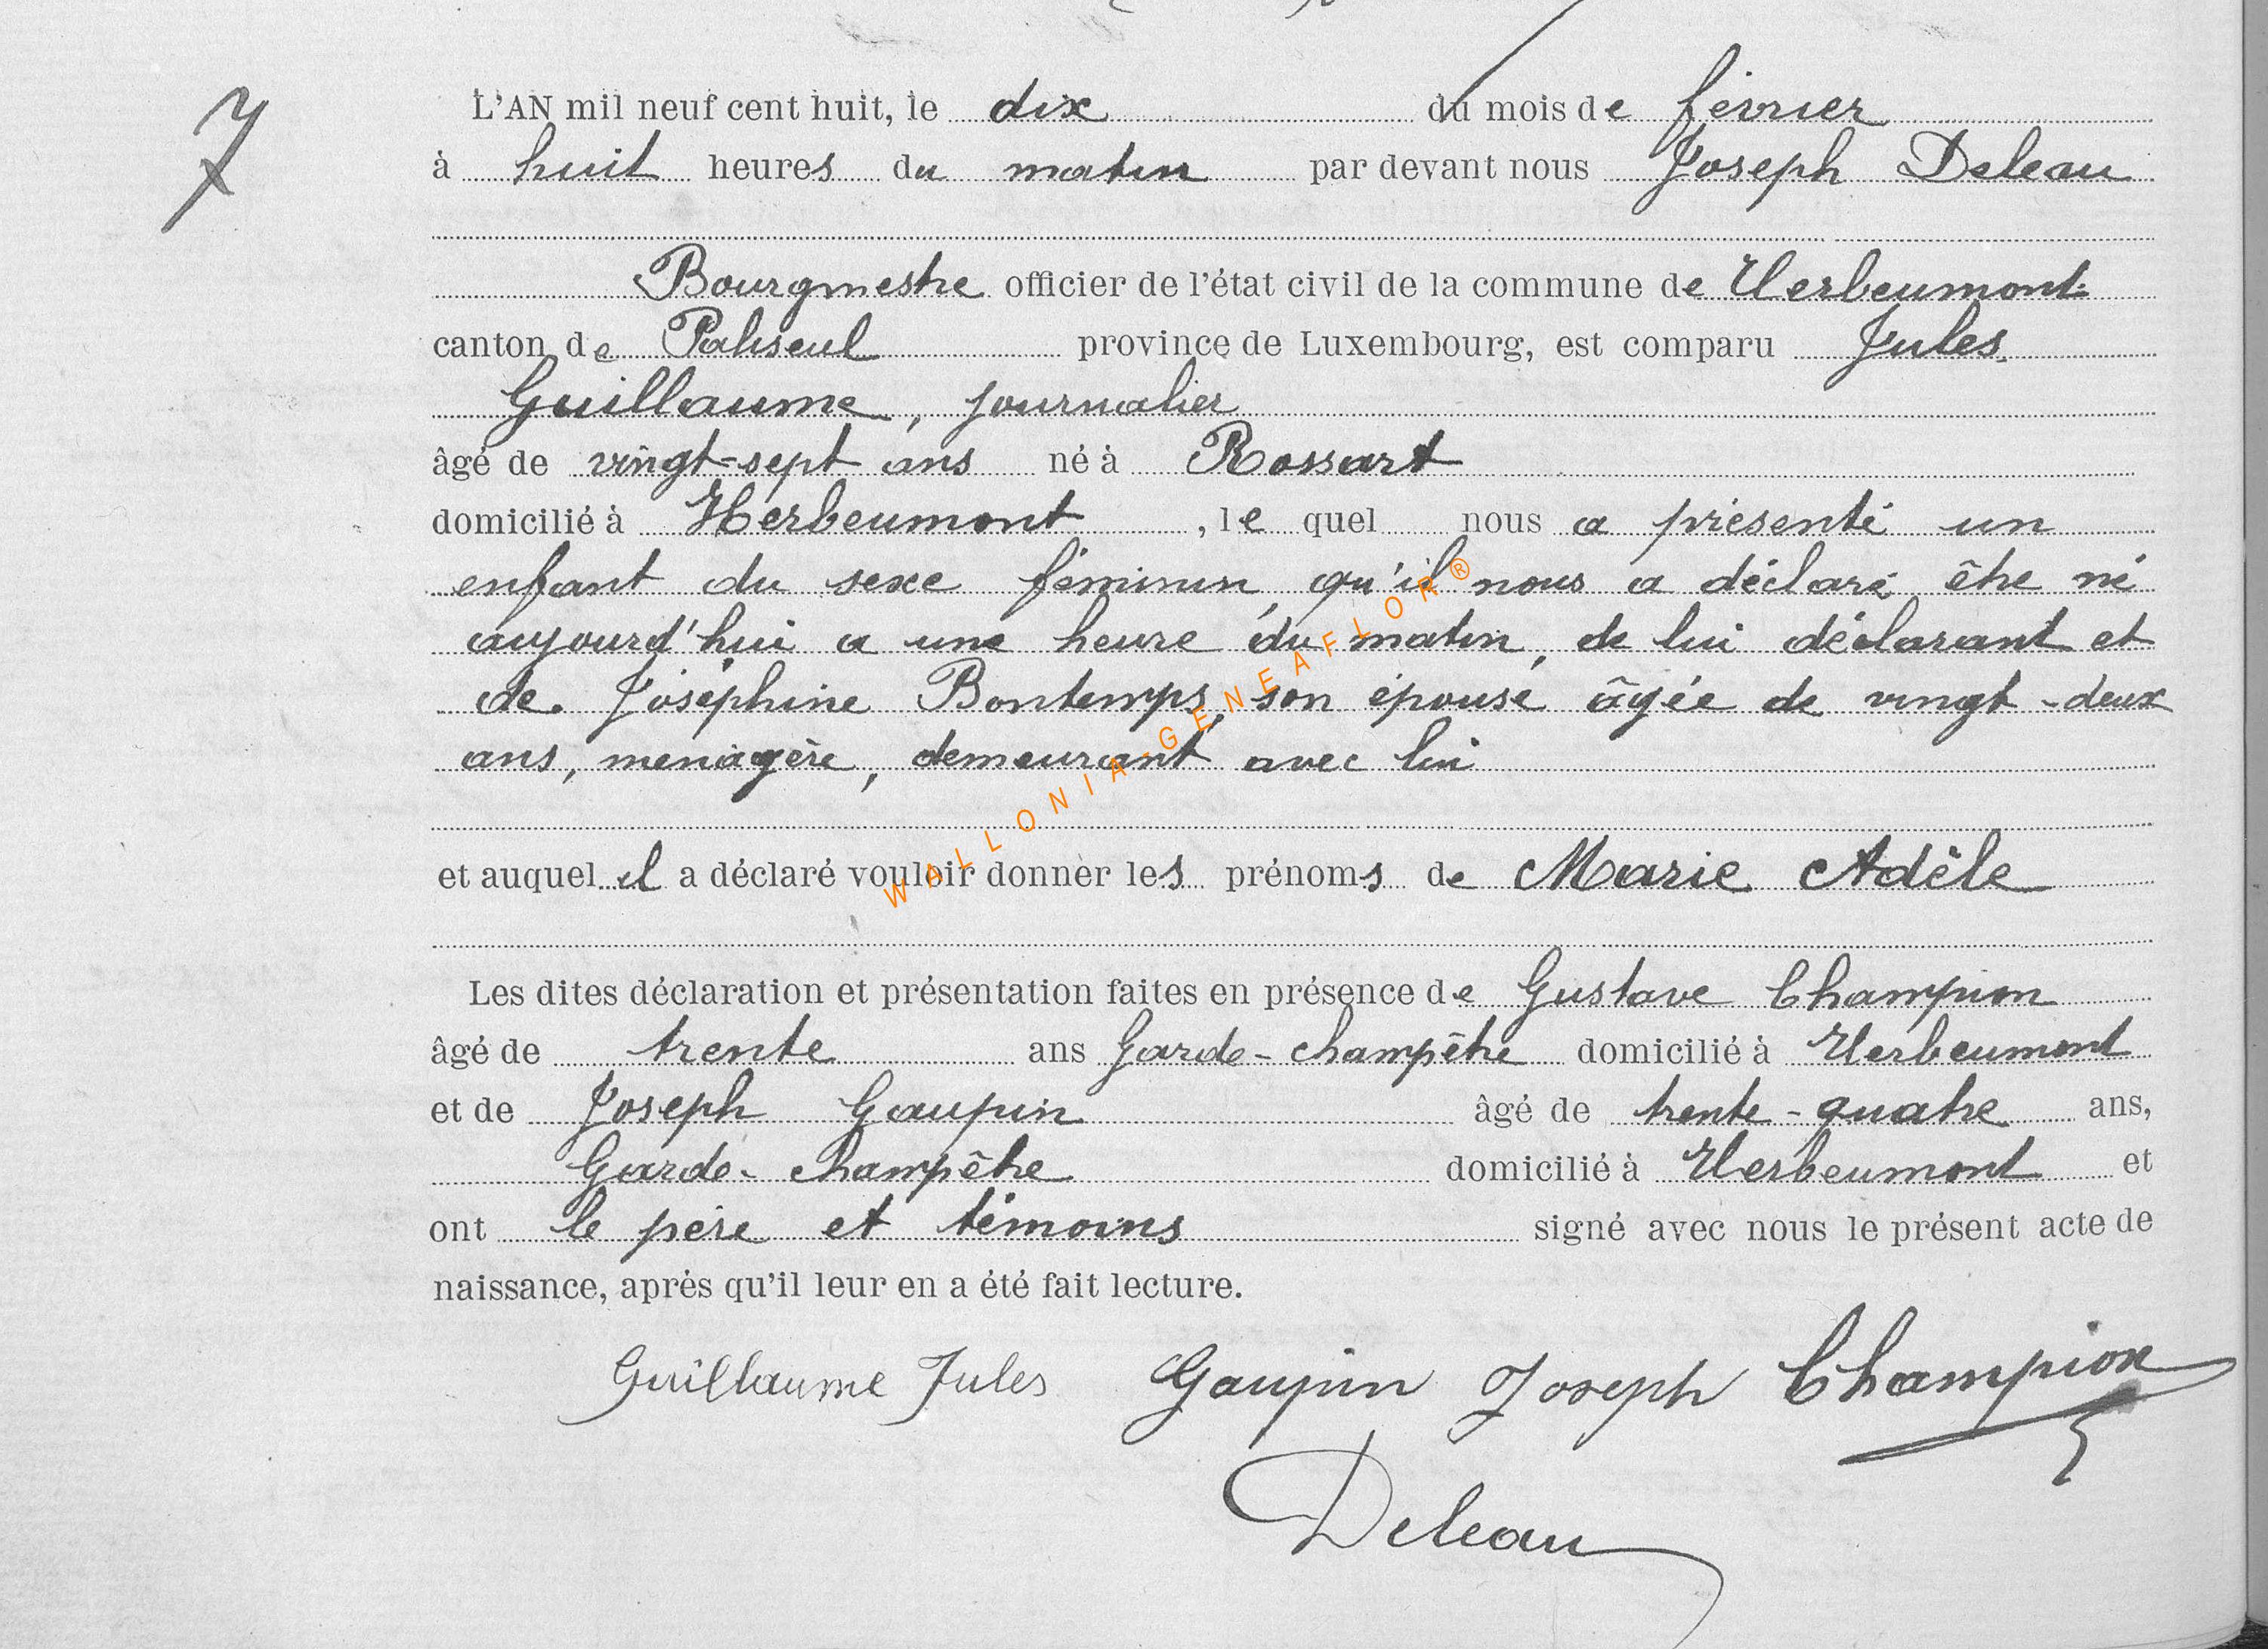 7
L'AN mil neuf cent huit, le dix du mois de février
à huit heures du matin par devant nous Joseph Deleau
Bourgmestre officier de l'état civil de la commune de Herbeumont
canton de Paliseul province de Luxembourg, est comparu Jules
Guillaume, journalier
âgé de vingt-sept ans né à Rossart
domicilié à Herbeumont, le quel nous a présenté un
enfant du sexe féminin, qu'il nous a déclaré être né
aujourd'hui a une heure du matin, de lui déclarant et
de Joséphine Bontemps, son épouse âgée de vingt-deux
ans, ménagère, demeurant avec lui
WALLONIA-GENEAFLOR®
et auquel il a déclaré vouloir donner les prénoms de Marie Adèle
Les dites déclaration et présentation faites en présence de Gustave Champion
âgé de trente ans Garde-champêtre domicilié à Herbeumont
et de Joseph Gaupin âgé de trente-quatre ans,
Garde-champêtre domicilié à Herbeumont et
ont le père et témoins signé avec nous le présent acte de
naissance, après qu'il leur en a été fait lecture.
Guillaume Jules Gaupin Joseph Champion
Deleau